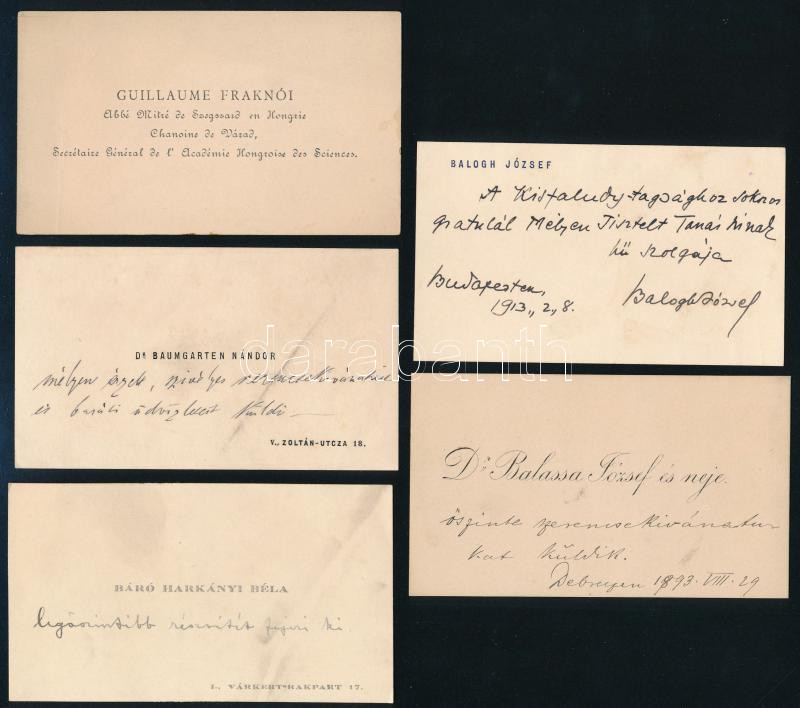 GUILLAUME FRAKNÓI
Abbé Mitré de Szegszard en Hongrie
Chanoine de Várad,
Secrétaire Général de l' Académie Hongroise des Sciences.
DR BAUMGARTEN NÁNDOR
mélyen szívélyes szerencsekívánatait
és baráti üdvözletét küldi
V., ZOLTÁN-UTCZA 18.
BÁRÓ HARKÁNYI BÉLA
legőszintébb részvétét fejezi ki.
I., VÁRKERT-RAKPART 17.
BALOGH JÓZSEF
A Kisfaludy-tagsághoz sokszoros
gratulál Mélyen Tisztelt Tanár Úrnak
hű szolgája
Budapesten,
1913., 2., 8.
Balogh József
Dr. Balassa József és neje.
őszinte szerencsekivánatai-
kat küldik.
Debreczen 1893. VIII. 29
darabanth